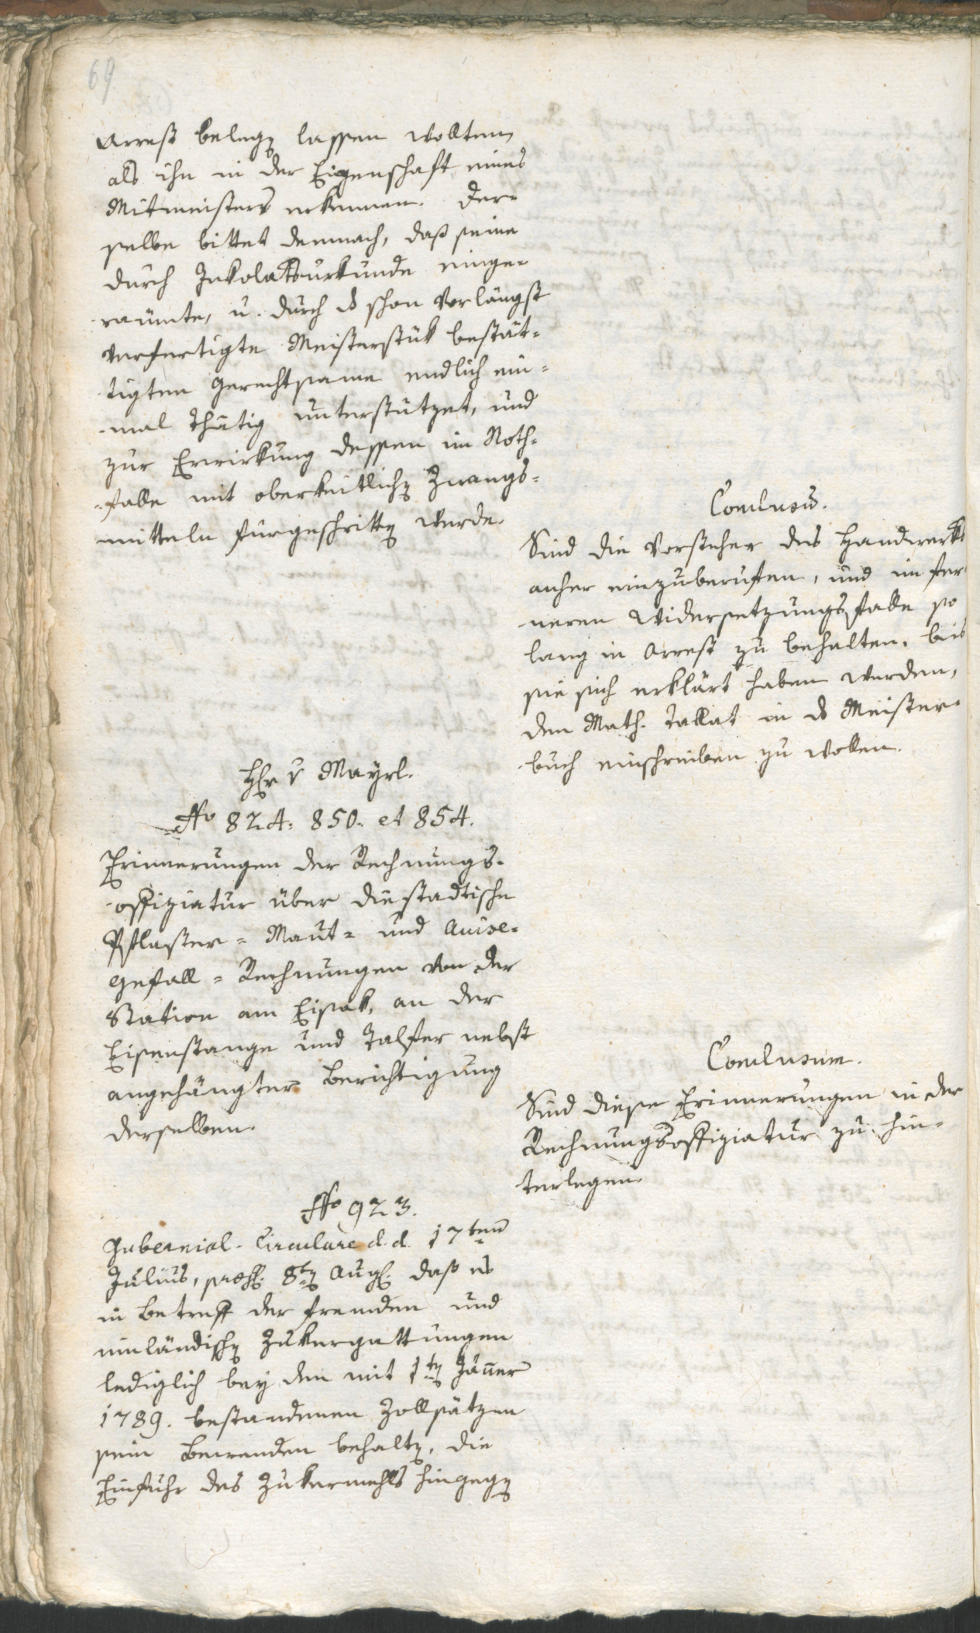 69
Arrest belegen lassen wollten,
als ihn in der Eigenschaft eines
Mitmeisters erkennen. Der-
selbe bittet demnach, daß seine
durch Inkolatsurkunde einge-
raümte, u. durch ds schon vorlängst
verfertigte Meisterstük bestät-
tigten Gerechtsame endlich ein-
mal thätig unterstützet, und
zur Erwirkung dessen im Noth-
falle mit oberkeitlichen Zwangs-
mitteln fürgeschritten werde.
Conclusum.
Sind die Vorsteher des Handwerks
anher einzuberuffen, und im fer
neren Widersetzungsfalle so
lang in Arrest zu behalten, bis
sie sich erklärt haben werden,
den Math. Tallat in ds Meister-
buch einschreiben zu wollen.
Hr v Mayrl.
Nro 824. 850. et 854.
Erinnerungen der Rechnungs-
offiziatur über die stadtische
Pflaster- Maut- und Accise-
Gefäll- Rechnungen von der
Station am Eisak, an der
Eisenstange und Talfer nebst
angehängter Berichtigung
derselben.
Conclusum.
Sind diese Erinnerungen in der
Rechnungsoffiziatur zu hin-
terlegen.
Nro 923.
Gubernial- Circulare d. d. 17ten
Julius, præs. 8ten Aug. daß es
in Betreff der fremden und
innländischen Zukergattungen
lediglich bey den mit 1ten Jänner
1789. bestandenen Zollsätzen
sein Bewenden behalte, die
Einfuhr des Zukermehls hingegen